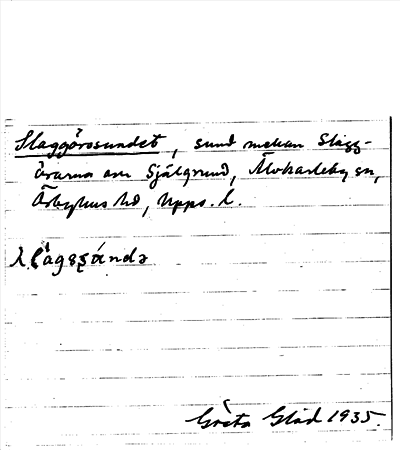 Slaggörosundet, sund mellan Slagg-
örarna om Själgrund, Älvkarleby sn,
Örbyhus hd, Upps. l.
Greta Glad 1935.